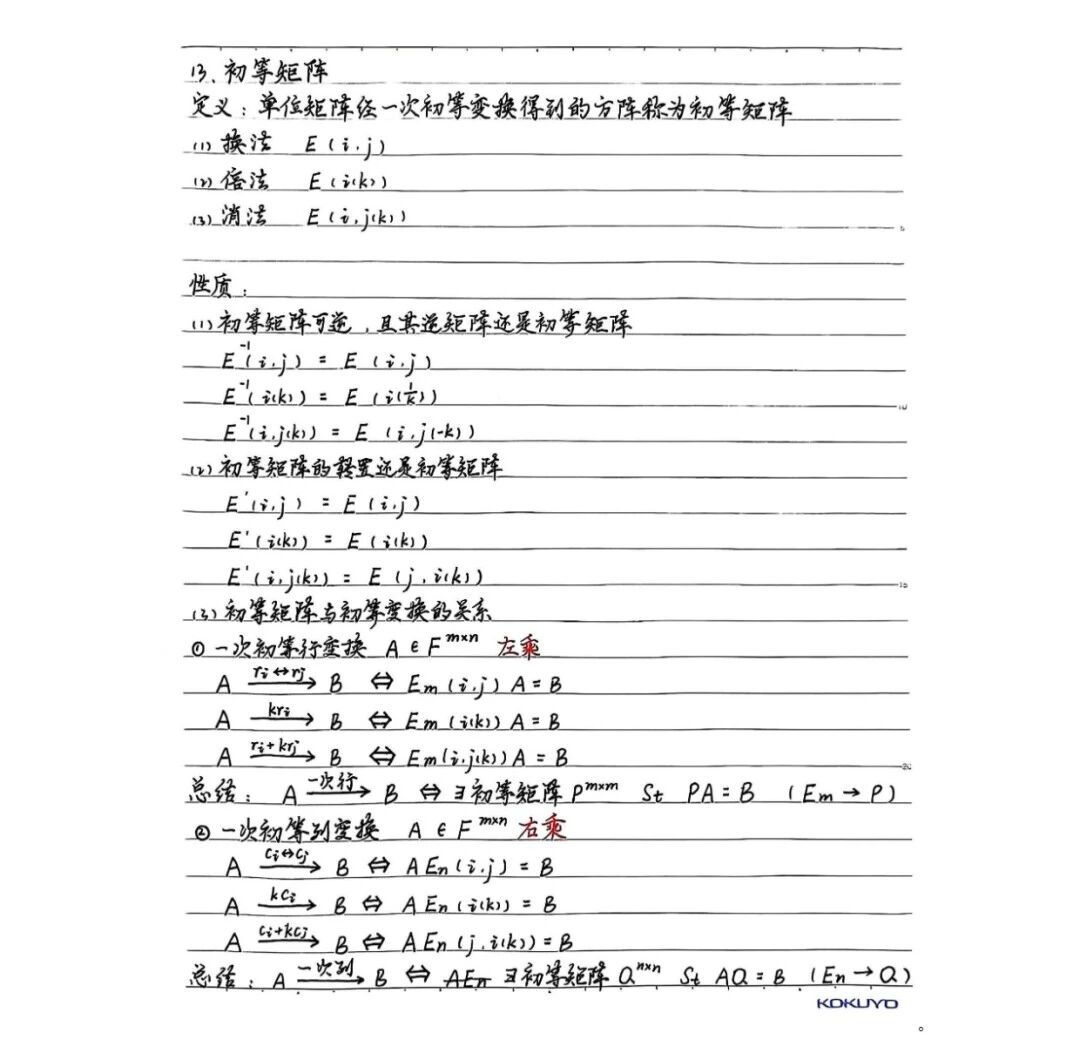 13、初等矩阵
定义：单位矩阵经一次初等变换得到的方阵称为初等矩阵
(1) 换法 E(i,j)
(2) 倍法 E(i(k))
(3) 消法 E(i,j(k))
5
性质：
(1) 初等矩阵可逆，且其逆矩阵还是初等矩阵
E⁻¹(i,j) = E(i,j)
E⁻¹(i(k)) = E(i(1/k))
10
E⁻¹(i,j(k)) = E(i,j(-k))
(2) 初等矩阵的转置还是初等矩阵
E'(i,j) = E(i,j)
E'(i(k)) = E(i(k))
E'(i,j(k)) = E(j,i(k))
15
(3) 初等矩阵与初等变换的关系
① 一次初等行变换 A∈F^{m×n} 左乘
A \xrightarrow{r_i↔r_j} B ⇔ E_m(i,j)A=B
A \xrightarrow{kr_i} B ⇔ E_m(i(k))A=B
A \xrightarrow{r_i+kr_j} B ⇔ E_m(i,j(k))A=B
20
总结：A \xrightarrow{一次行} B ⇔ ∃初等矩阵P^{m×m} St PA=B (E_m→P)
② 一次初等列变换 A∈F^{m×n} 右乘
A \xrightarrow{c_i↔c_j} B ⇔ AE_n(i,j)=B
A \xrightarrow{kc_i} B ⇔ AE_n(i(k))=B
A \xrightarrow{c_i+kc_j} B ⇔ AE_n(j,i(k))=B
总结：A \xrightarrow{一次列} B ⇔ AE_n ∃初等矩阵Q^{n×n} St AQ=B (E_n→Q)
KOKUYO
。